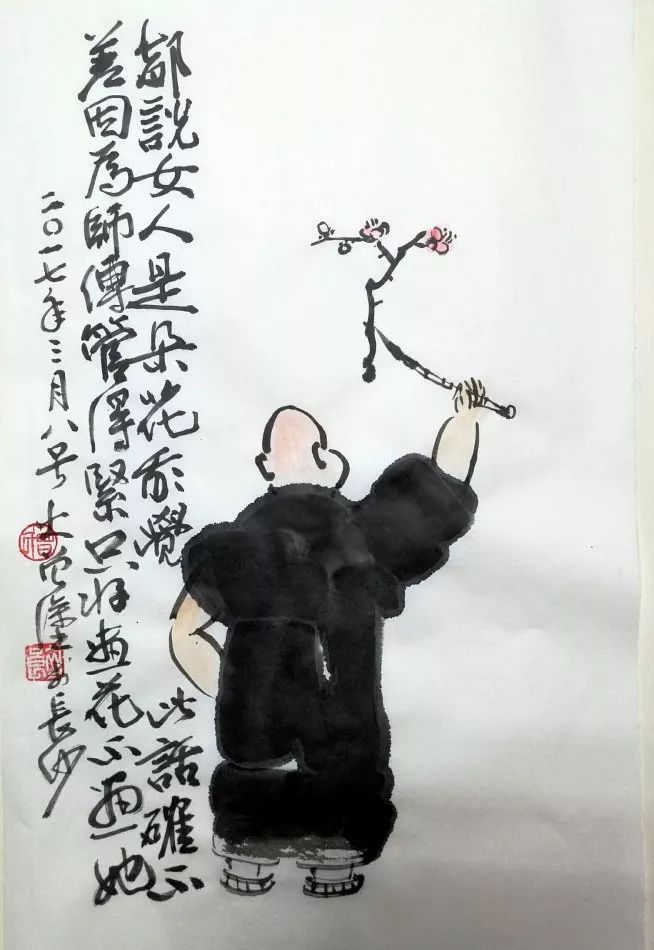 都說女人是朵花我覺此話確不
差因為師傅管得緊只好畫花不畫她
二〇一七年三月八号 於長沙